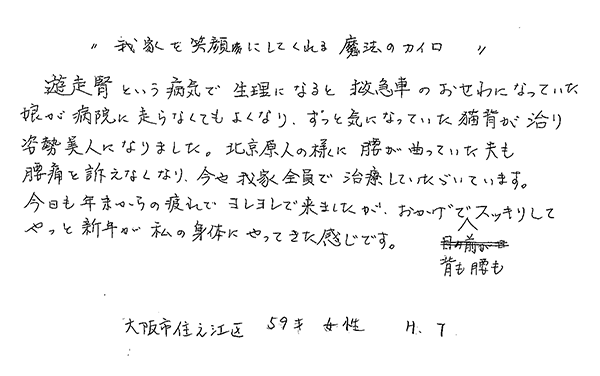 〃 我家を笑顔にしてくれる 魔法のカイロ 〃
遊走腎という病気で 生理になると 救急車のおせわになっていた
娘が病院に走らなくてもよくなり、ずっと気になっていた猫背が治り
姿勢美人になりました。北京原人の様に 腰が曲っていた夫も
腰痛を訴えなくなり、今や我家全員で 治療していただいています。
今日も年末からの疲れで ヨレヨレで来ましたが、おかげでスッキリして
やっと新年が 私の身体にやってきた感じです。
背も腰も
大阪市住之江区 59才 女性 H.T